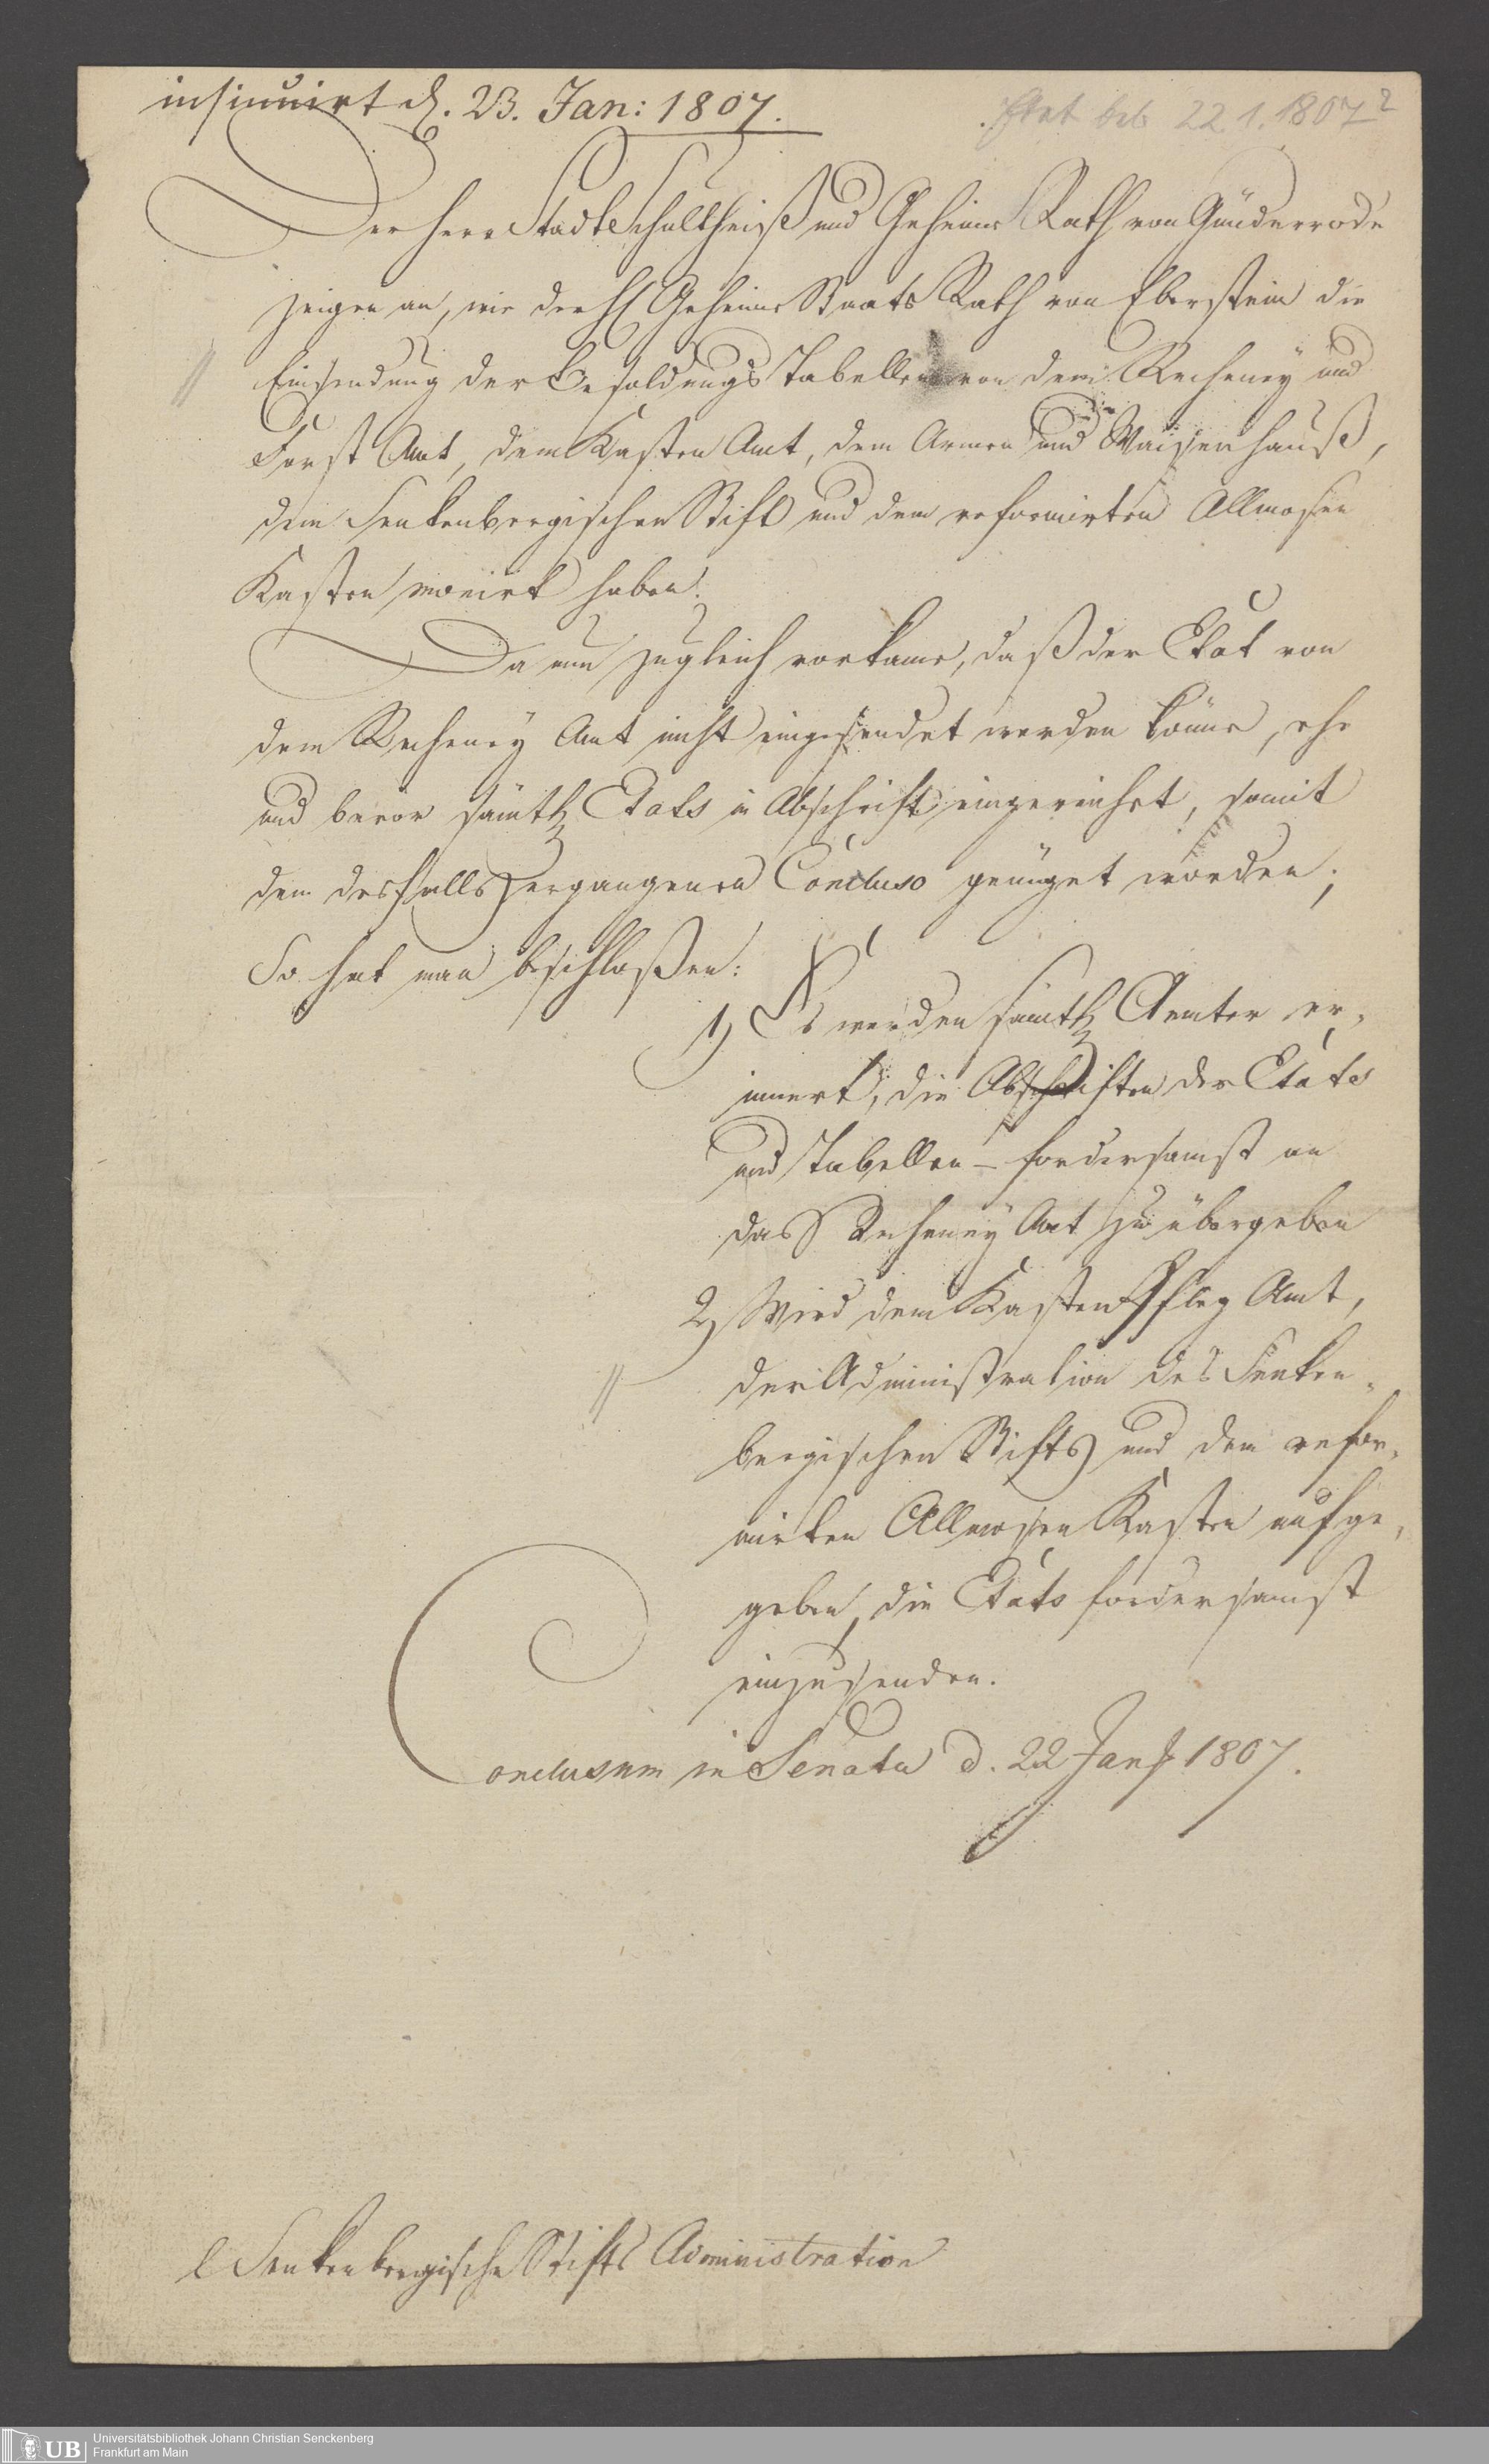 insinuirt d. 23. Jan: 1807.
22.1.1807 2
Der Herr Stadtschultheiß und Geheime Rath von Günderrode
zeigen an, wie der H. Geheime Staats Rath von Eberstein die
Einsendung der Besoldungs Tabellen von dem Recheney und
Forst Amt, dem Kasten Amt, dem Armen und Waisenhauß,
dem Senkenbergischen Stift und dem reformirten Allmosen
Kasten monirt haben.
Da nun zugleich vorkame, daß der Etat von
dem Recheney Amt nicht eingesendet werden könne, ehe
und bevor sämtl. Etats in Abschrift eingereichet, somit
dem desfalls ergangenen Concluso genüget worden;
So hat man beschloßen:
1) Es werden sämtl. Aemter er-
innert, die Abschriften der Etats
und Tabellen fordersamst an
das Recheney Amt zu übergeben
2) Wird dem Kasten Pfleg Amt,
der Administration des Senken-
bergischen Stifts und dem refor-
mirten Allmosen Kasten aufge-
geben, die Etats fordersamst
einzusenden.
Conclusum in Senatu d. 22 Jan. 1807.
Senkenbergische Stifts Administration
UB Universitätsbibliothek Johann Christian Senckenberg
Frankfurt am Main